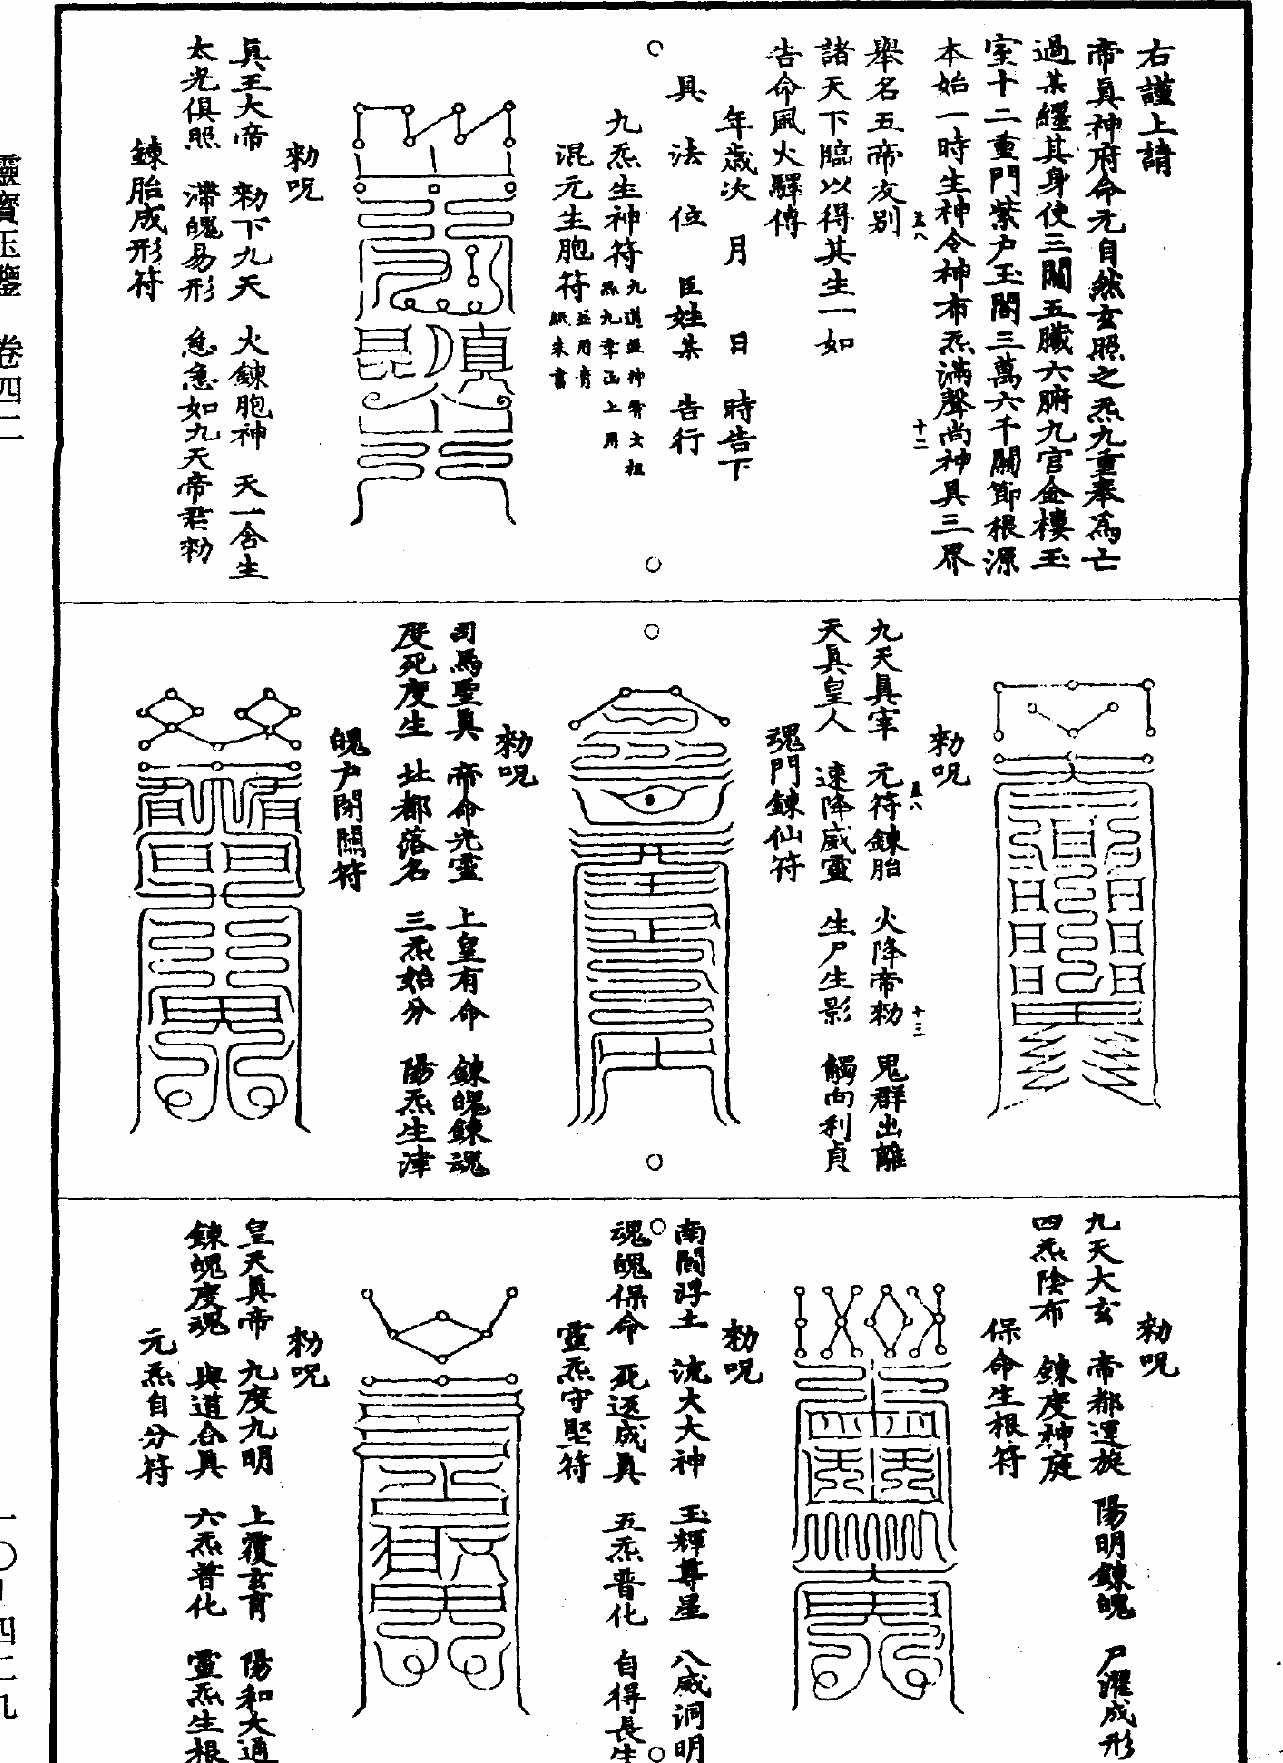 右謹上請
帝眞神府命元自然玄照之炁九重奉爲亡
過某纒其身使三關五臟六腑九宮金樓玉
室十二重門紫戶玉閣三萬六千關節根源
本始一時生神令神布炁滿聲尚神具三界
舉名五帝友別
諸天下臨以得其生一如
告命風火驛傳
年歲次 月 日 時告下
具 法 位 臣姓某 告行
九炁生神符
混元生胞符
勑呪
眞王大帝 勑下九天 火鍊胞神 天一含生
太光俱照 滯魄易形 急急如九天帝君勑
鍊胎成形符
勑呪
九天眞宰 元符鍊胎 火降帝勑 鬼群出離
天眞皇人 速降威靈 生尸生影 觸向利貞
魂門鍊仙符
勑呪
司馬聖眞 帝命光靈 上皇有命 鍊魄鍊魂
度死度生 北都落名 三炁始分 陽炁生津
魄戶閉關符
勑呪
九天大玄 帝都運旋 陽明鍊魄 尸濯成形
四炁陰布 鍊度神旋
保命生根符
勑呪
南閻浮土 流大大神 玉輝尊星 八威洞明
魂魄保命 死返成眞 五炁普化 自得長生
靈炁守堅符
勑呪
皇天眞帝 九度九明 上覆玄育 陽和大通
鍊魄度魂 與道合眞 六炁普化 靈炁生根
元炁自分符
靈寶玉鑒 卷四二
一〇－四二九